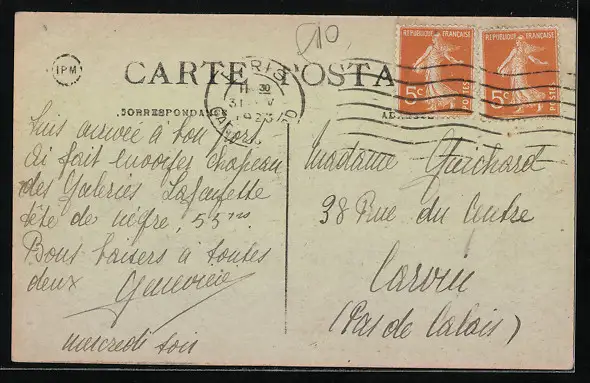 10
IPM
CARTE POSTA
PARIS
11 30
31
1923
GARE
REPUBLIQUE FRANÇAISE
5c POSTES
REPUBLIQUE FRANÇAISE
5c POSTES
CORRESPONDANCE
ADRESSE
Suis arrivée à bon port
Ai fait envoyer chapeau
des Galeries Lafayette
tête de nègre, 55
Bons baisers à toutes
deux Geneviève
mercredi soir
Madame Guichard
38 Rue du Centre
Carvin
(Pas de Calais)